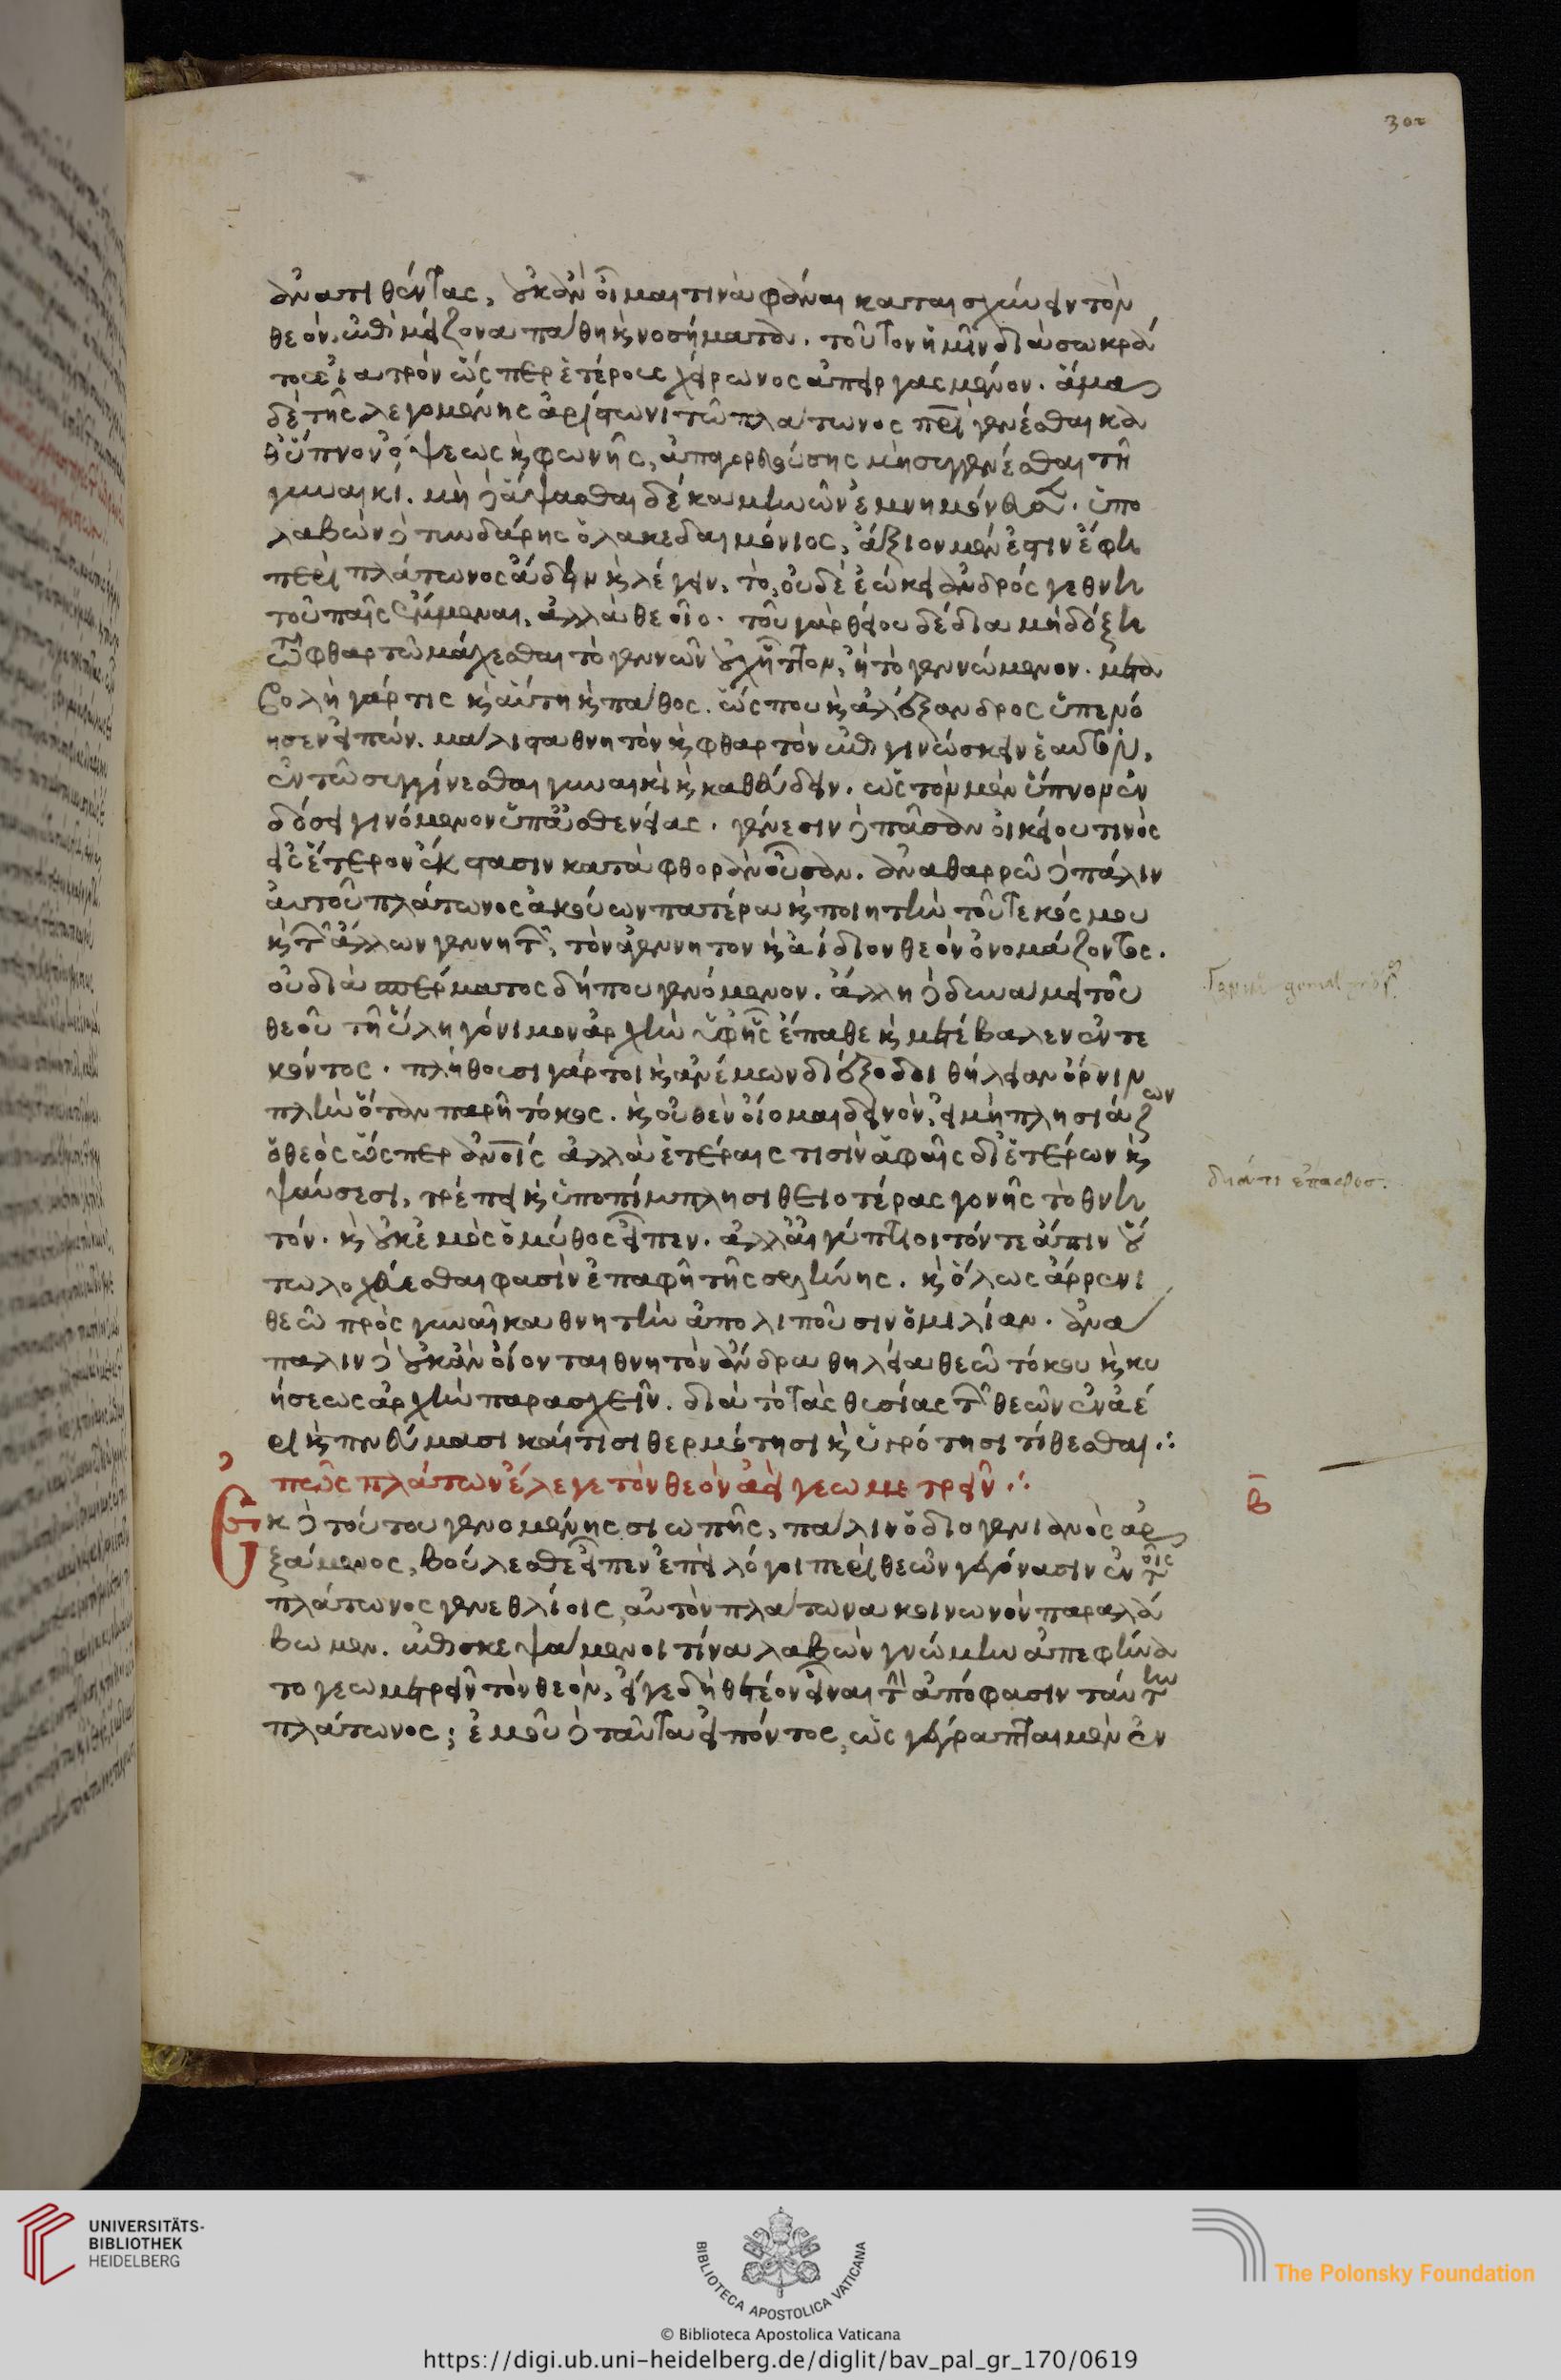 ἀνατιθέντας, οὐκ ἂν οἶμαι τινὰ φάναι καταισχύνειν τὸν
θεόν. ἐπὶ μείζονα πάθη καὶ νοσήματα. τοῦτον ἡμῖν διὰ σωκρά
τους ἰατρὸν ὥσπερ ἑτέρους χείρωνος ἀπειργασμένον. ἅμα
δὲ τῆς λεγομένης ἀρίστωνι τῶ πλάτωνος πατρὶ γενέσθαι κα
θ' ὕπνον ὄψεως καὶ φωνῆς, ἀπαγορευούσης μὴ συγγενέσθαι τῆ
γυναικὶ. μὴ δ' ἅψασθαι δέκα μηνῶν ἐμνημόνευσεν. ὑπο
λαβὼν δὲ τυνδάρης ὁ λακεδαιμόνιος, ἄξιον μὲν ἐστὶν ἔφη
περὶ πλάτωνος ἄδειν καὶ λέγειν, τὸ, οὐδὲ ἐώκει ἀνδρός γε θνη
τοῦ παῖς ἔμμεναι, ἀλλὰ θεοῖο. τοῦ γὰρ θείου δέδια μὴ δόξη
τῶ φθαρτῶ μάχεσθαι τὸ γεννῶν οὐχ ἧττον, ἢ τὸ γεννώμενον. μετα
βολὴ γάρ τις καὶ αὕτη καὶ πάθος. ὥς που καὶ ἀλέξανδρος ὑπενό
ησεν εἰπών. μάλιστα θνητὸν καὶ φθαρτὸν ἐπιγινώσκειν ἑαυτὸν,
ἐν τῶ συγγίνεσθαι γυναικὶ καὶ καθεύδειν. ὡς τὸν μὲν ὕπνον ἐν
δόσει γινόμενον ὑπ' ἀσθενείας. γένεσιν δὲ πᾶσαν οἰκείου τινὸς
εἰς ἕτερον ἔκστασιν κατὰ φθορὰν οὖσαν. ἀναθαρρῶ δὲ πάλιν
αὐτοῦ πλάτωνος ἀκούων πατέρα καὶ ποιητὴν τοῦ τε κόσμου
καὶ τῶν ἄλλων γεννητῶν, τὸν ἀγέννητον καὶ ἀίδιον θεὸν ὀνομάζοντος.
οὐ διὰ σπέρματος δήπου γενόμενον. ἄλλη δὲ δυνάμει τοῦ
θεοῦ τῆ ὕλη γόνιμον ἀρχὴν ὑφ' ἧς ἔπαθε καὶ μετέβαλεν ἐντε
κόντος. πλήθουσι γάρ τοι καὶ ἀνέμων διέξοδοι θήλειαν ὄρνιν
πλὴν ὅταν παρῆ τόκος. καὶ οὐθὲν οἴομαι δεινὸν, εἰ μὴ πλησιάζων
ὁ θεὸς ὥσπερ ἄνθρωποις ἀλλὰ ἑτέραις τισὶν ἁφαῖς δι' ἑτέρων καὶ
ψαύσεσι, τρέπει καὶ ὑποπίμπλησι θειοτέρας γονῆς τὸ θνη
τόν. καὶ οὐκ ἐμὸς ὁ μῦθος εἶπεν. ἀλλ' αἰγύπτιοι τόν τε ἆπιν οὕ
τω λοχεύεσθαι φασὶν ἐπαφῆ τῆς σελήνης. καὶ ὅλως ἄρρενι
θεῶ πρὸς γυναῖκα θνητὴν ἀπολιποῦσιν ὁμιλίαν. ἀνά
παλιν δ' οὐκ ἂν οἴονται θνητὸν ἄνδρα θηλεία θεῶ τόκου καὶ κυ
ήσεως ἀρχὴν παρασχεῖν. διὰ τὸ τὰς θυσίας τῶν θεῶν ἐν ἀέ
ρι καὶ πνεύμασι καί τισι θερμότησι καὶ ὑγρότησι τίθεσθαι.:
πῶς πλάτων ἔλεγε τὸν θεὸν ἀεὶ γεωμετρεῖν.:
Ἐκ δὲ τούτου γενομένης σιωπῆς, πάλιν ὁ διογενιανὸς ἀρ
ξάμενος, βούλεσθε εἶπεν ἐπεὶ λόγοι περὶ θεῶν γεγόνασιν ἐν τοῖς
πλάτωνος γενεθλίοις, αὐτὸν πλάτωνα κοινωνὸν παραλά
βωμεν. ἐπισκεψάμενοι τίνα λαβὼν γνώμην ἀπεφήνα
το γεωμετρεῖν τὸν θεὸν, εἴγε δὴ θετέον εἶναι τὴν ἀπόφασιν ταύτην
πλάτωνος; ἐμοῦ δὲ ταῦτα εἰπόντος, ὡς γέγραπται μὲν ἐν
β
UNIVERSITÄTS-
BIBLIOTHEK
HEIDELBERG
BIBLIOTECA APOSTOLICA VATICANA
The Polonsky Foundation
© Biblioteca Apostolica Vaticana
https://digi.ub.uni-heidelberg.de/diglit/bav_pal_gr_170/0619